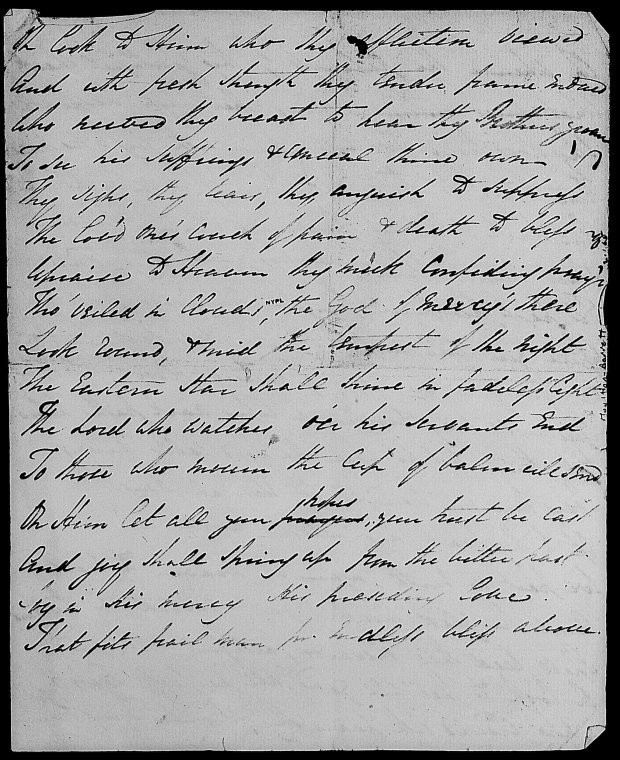 Oh look to Him who thy affliction viewed
And with fresh strength thy tender frame endued
Who nerved thy breast to hear thy Brothers groan
To see his suffrings & conceal thine own
Thy sighs, thy tears, thy anguish to suppress
The lov'd one's couch of pain & death to bless
Upraise to Heaven thy meek confiding pray'r
Tho' veiled in Clouds, the God of mercy's there
NYPL
Look round, & mid the tempest of the night
The Eastern Star shall shine in fadeless light
The Lord who watches o'er his servants End
To those who mourn the cup of balm will send
On Him let all your hopes, your trust be cast
And joy shall spring up from the bitter past
Joy in His mercy His preceding Love
That fits frail man for endless bliss above.